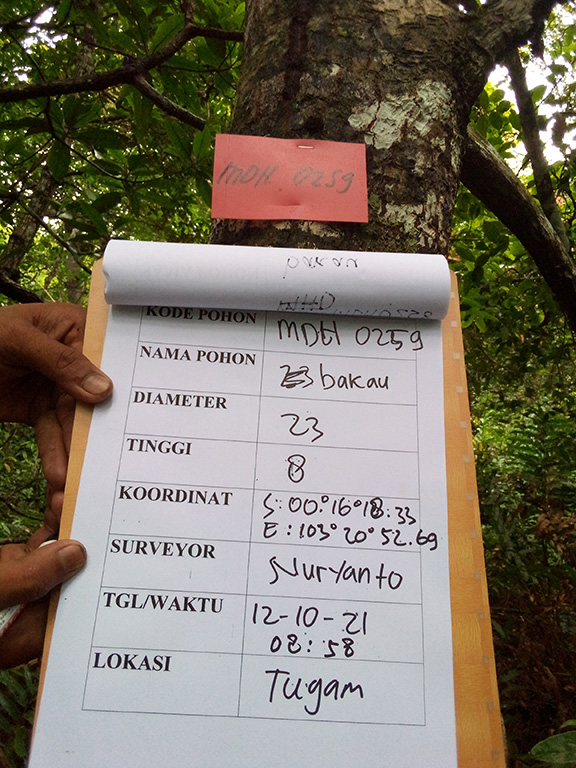 MDH 0259
pakan
KODE POHON MDH 0259
NAMA POHON bakau
DIAMETER 23
TINGGI 8
KOORDINAT S: 00° 16° 18.33
E : 103° 20° 52.69
SURVEYOR Nuryanto
TGL/WAKTU 12-10-21
08:58
LOKASI Tugam